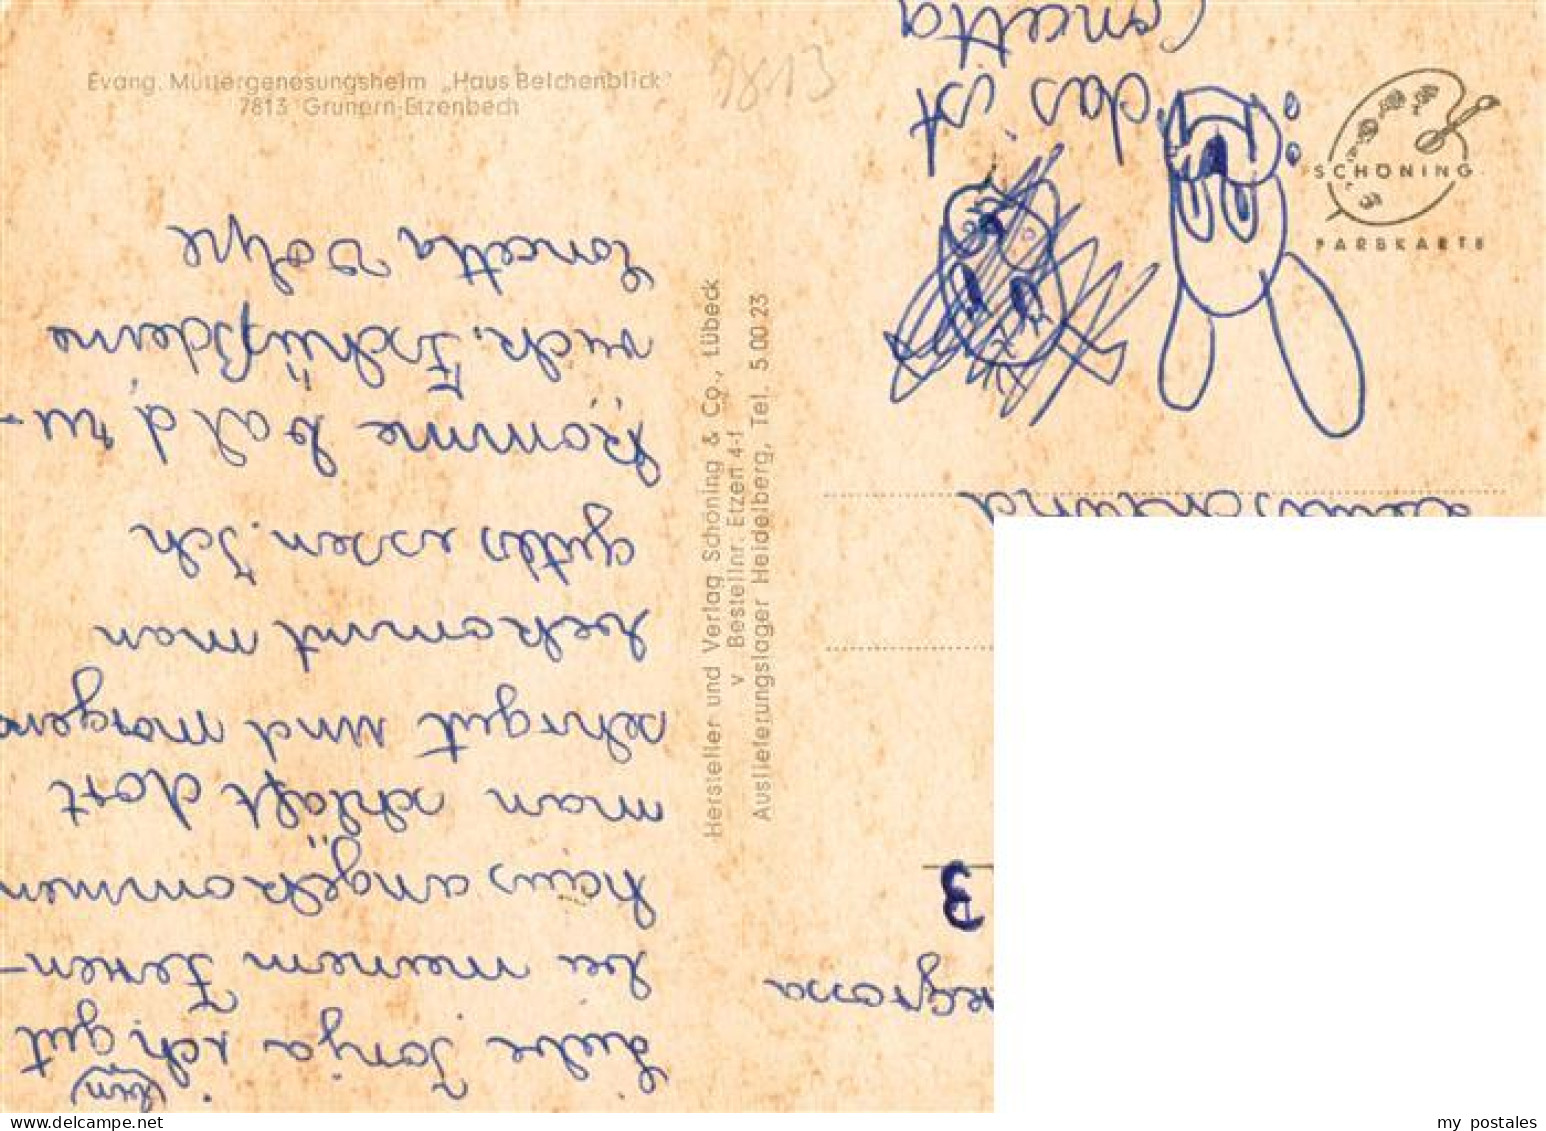 Evang. Müttergenesungsheim „Haus Belchenblick"
7813 Grunern-Etzenbach
7813
Liebe Tonja ich (bin) gut
bei meinem Ferien-
haus angekommen
man schläft dort
sehrgut und morgens
bekommt man
gutes essen. Ich
komme bald zu-
rück. Tschüß deine
Concetta
Hersteller und Verlag Schöning & Co., Lübeck
v Bestellnr. Etzen 4-1
Auslieferungslager Heidelberg, Tel. 5 00 23
das ist
Concetta
SCHÖNING
FARBKARTE
Deutschland
3